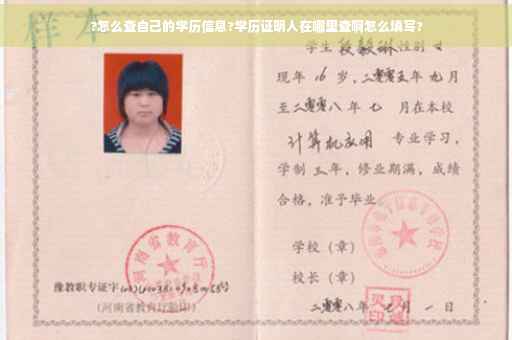 ?怎么查自己的学历信息?学历证明人在哪里查啊怎么填写?
样本
学生 段毅琳 性别 女
现年 16 岁，二零零五年 九月
至二零零八年 七 月在本校
计算机应用 专业学习，
学制 三 年，修业期满，成绩
合格，准予毕业。
学校（章）
校长（章）
二零零八年 七 月 一 日
河南省教育厅
豫教职专证字
（河南省教育厅验印）